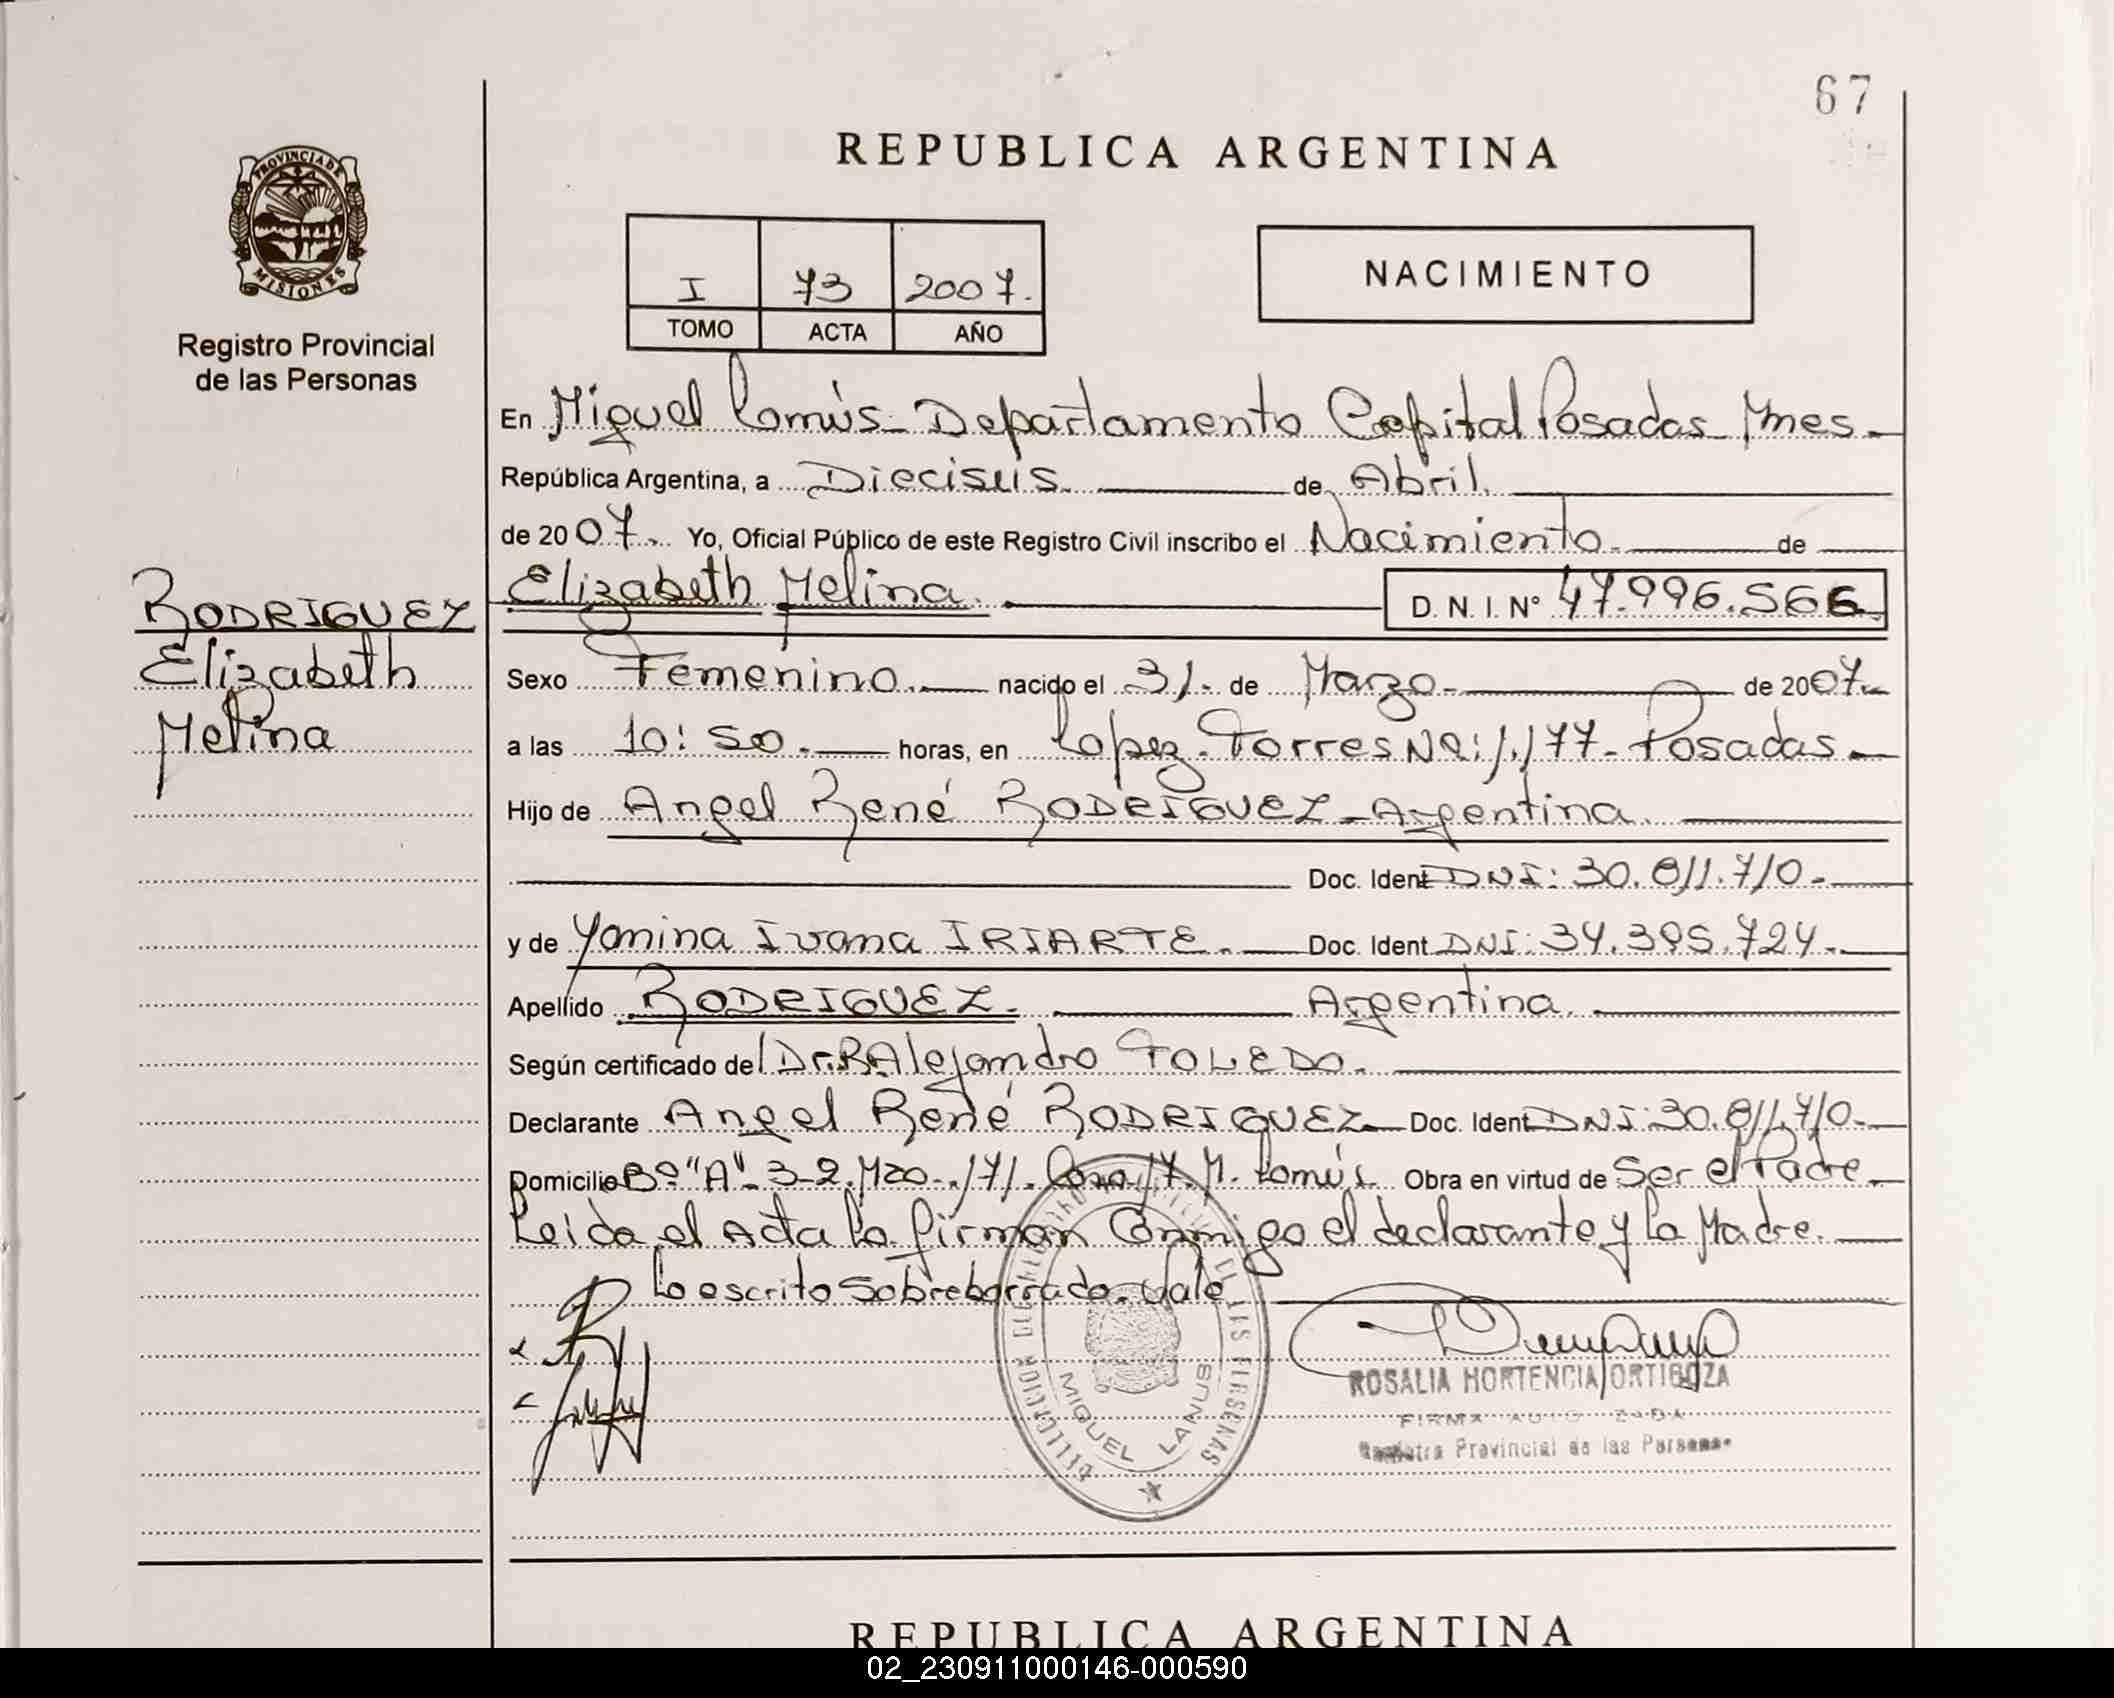 67
REPUBLICA ARGENTINA
PROVINCIA DE
MISIONES
Registro Provincial
de las Personas
I 73 2007.
TOMO ACTA AÑO
NACIMIENTO
En Miguel Lanús - Departamento Capital Posadas Mnes -
República Argentina, a Dieciseis. de Abril.
de 2007. Yo, Oficial Público de este Registro Civil inscribo el Nacimiento. de
Elizabeth Melina. D. N. I. Nº 47.996.566
RODRIGUEZ
Elizabeth
Melina
Sexo Femenino. nacido el 31. de Marzo. de 2007.
a las 10:50. horas, en Lopez Torres Nº: 1.177 - Posadas
Hijo de Angel René RODRIGUEZ - Argentina.
Doc. Ident DNI: 30.811.710.
y de Yanina Ivana IRIARTE. Doc. Ident. DNI: 34.395.724.
Apellido RODRIGUEZ. Argentina.
Según certificado del Dr. R. Alejandro TOLEDO.
Declarante Angel René RODRIGUEZ Doc. Ident DNI: 30.811.710.
Domicilio Bº "A" 3-2. Mzo. 171. Casa 17. M. Lanús. Obra en virtud de Ser el Padre.
Leida el Acta la firman Conmigo el declarante y la Madre.
Lo escrito Sobreborrado. Vale
MIGUEL LANUS
DE LAS PERSONAS
ROSALIA HORTENCIA ORTIGOZA
FIRMA AUTORIZADA
Registro Provincial de las Personas
REPUBLICA ARGENTINA
02_230911000146-000590